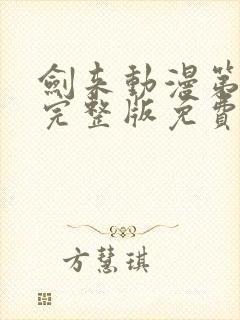 劍来動漫第
完整版免費
方慧琪